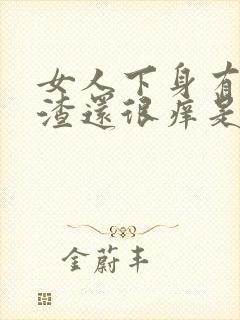 女人下身有
渣還很痒是
金蔚丰